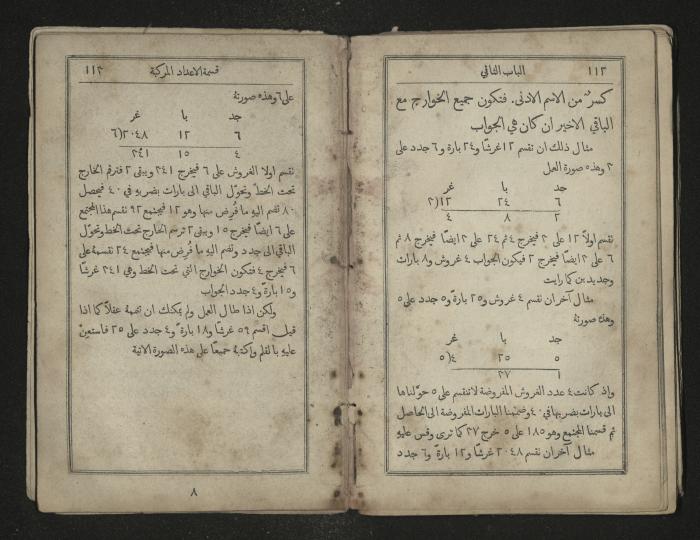 ١١٢ الباب الثاني
كسرٌ من الاسم الادنى. فتكون جميع الخوارج مع
الباقي الاخير ان كان هي الجواب
مثال ذلك ان نقسم ١٢ غرشًا و٢٤ بارة و٦ جدد على
٣ وهذه صورة العمل
جد با غر
٦ ٢٤ ١٢(٣
٢ ٨ ٤
نقسم اولًا ١٢ على ٣ فيخرج ٤ ثم ٢٤ على ٣ ايضًا فيخرج ٨ ثم
٦ على ٣ ايضًا فيخرج ٢ فيكون الجواب ٤ غروش و٨ بارات
وجديدين كما رايت
مثال آخر ان نقسم ٤ غروش و٢٥ بارة و٥ جدد على ٥
وهذه صورتهُ
جد با غر
٥ ٢٥ ٤(٥
١ ٣٧
واذ كانت ٤ عدد الغروش المفروضة لا تنقسم على ٥ حوّلناها
الى بارات بضربها في ٤٠ وضممنا البارات المفروضة الى الحاصل
ثم قسمنا المجتمع وهو ١٨٥ على ٥ خرج ٣٧ كما ترى وقس عليهِ
مثال آخر ان نقسم ٢٠٤٨ غرشًا و١٢ بارةً و٦ جدد
قسمة الاعداد المركبة ١١٣
على ٦ وهذه صورتهُ
جد با غر
٦ ١٢ ٢٠٤٨(٦
٤ ١٥ ٣٤١
نقسم اولًا الغروش على ٦ فيخرج ٣٤١ ويبقى ٢ فترقم الخارج
تحت الخطّ ونحوّل الباقي الى بارات بضربهِ في ٤٠ فيحصل
٨٠ نضم اليهِ ما فُرِض منها وهو ١٢ فيجتمع ٩٢ نقسم هذا المجتمع
على ٦ ايضًا فيخرج ١٥ ويبقى ٢ نرسم الخارج تحت الخط ونحوّل
الباقي الى جدد ونضم اليهِ ما فُرِض منها فيجتمع ٢٤ نقسمهُ على
٦ فيخرج ٤ فتكون الخوارج التي تحت الخط وهي ٣٤١ غرشًا
و١٥ بارةً و٤ جدد الجواب
ولكن اذا طال العمل ولم يمكنك ان تضمهُ عقلًا كما اذا
قيل اقسم ٥٩ غرشًا و١٨ بارةً و٤ جدد على ٢٥ فاستعِنْ
عليهِ بالقلم واكتبهُ جميعًا على هذه الصورة الآتية
٨